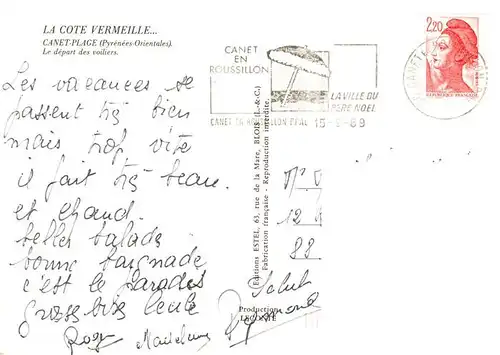 LA COTE VERMEILLE...
CANET-PLAGE (Pyrénées-Orientales).
Le départ des voiliers.
CANET
EN
ROUSSILLON
LA VILLE DU
PERE NOEL
CANET EN ROUSSILLON PPAL 15-9-89
2,20
Les vacances se
passent très bien
mais trop vite
il fait très beau.
et chaud.
belles balade
bonne baignade
c'est le Paradis
grosse bise
Salut
88
Editions ESTEL, 63, rue de la Mare, BLOIS (L.-&-C.)
Fabrication française - Reproduction interdite.
Production
LECONTE